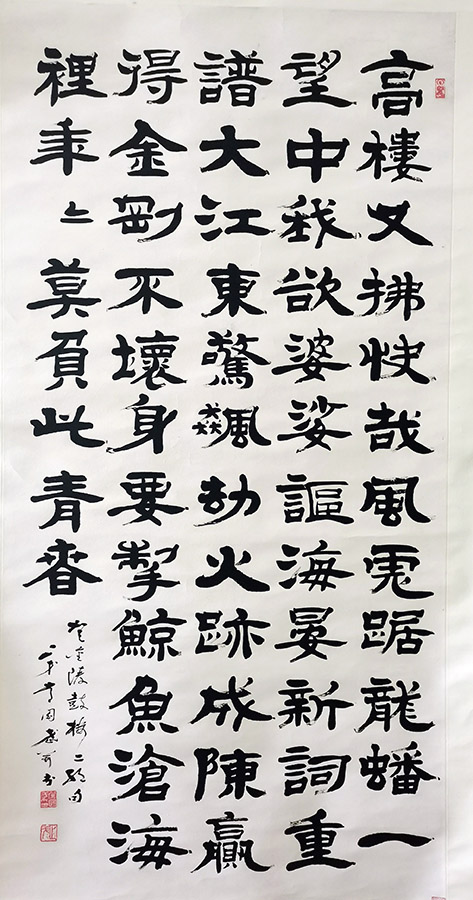 高樓又拂快哉風虎踞龍蟠一
望中我欲婆娑謳海晏新詞重
譜大江東驚飆劫火跡成陳贏
得金剛不壞身要掣鯨魚滄海
裡年〻莫負此青春
登金陵鼓樓二絕句
書